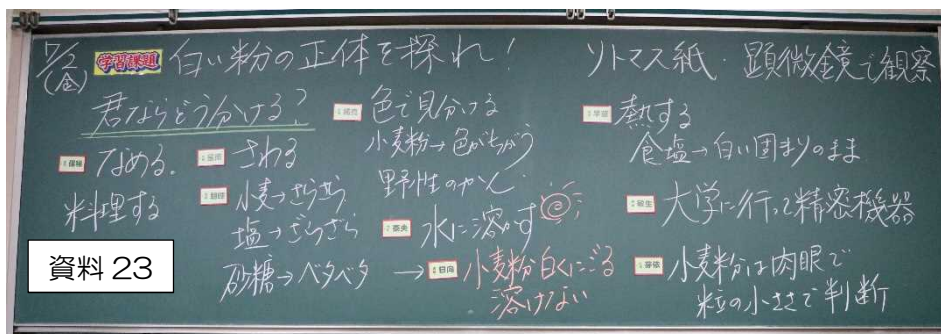 7/2(金) 学習課題 白い粉の正体を探れ!
君ならどう分ける?
なめる。
料理する
さわる
小麦→さらさら
塩→ざらざら
砂糖→ベタベタ
色で見分ける
小麦粉→色がちがう
野性のかん
水に溶かす
→ 小麦粉白くにごる
溶けない
リトマス紙・顕微鏡で観察
熱する
食塩→白い固まりのまま
大学に行って精密機器
小麦粉は肉眼で
粒の小ささで判断
資料 23